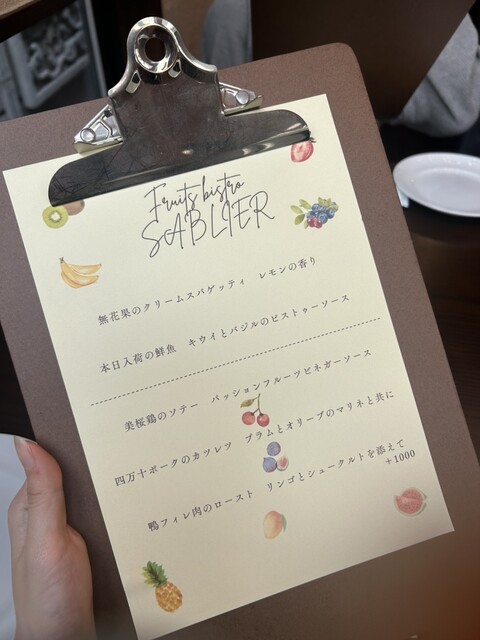 Fruits bistro
SABLIER
無花果のクリームスパゲッティ　レモンの香り
本日入荷の鮮魚　キウイとバジルのピストゥーソース
美桜鶏のソテー　パッションフルーツビネガーソース
四万十ポークのカツレツ　プラムとオリーブのマリネと共に
鴨フィレ肉のロースト　リンゴとシュークルトを添えて
+1000